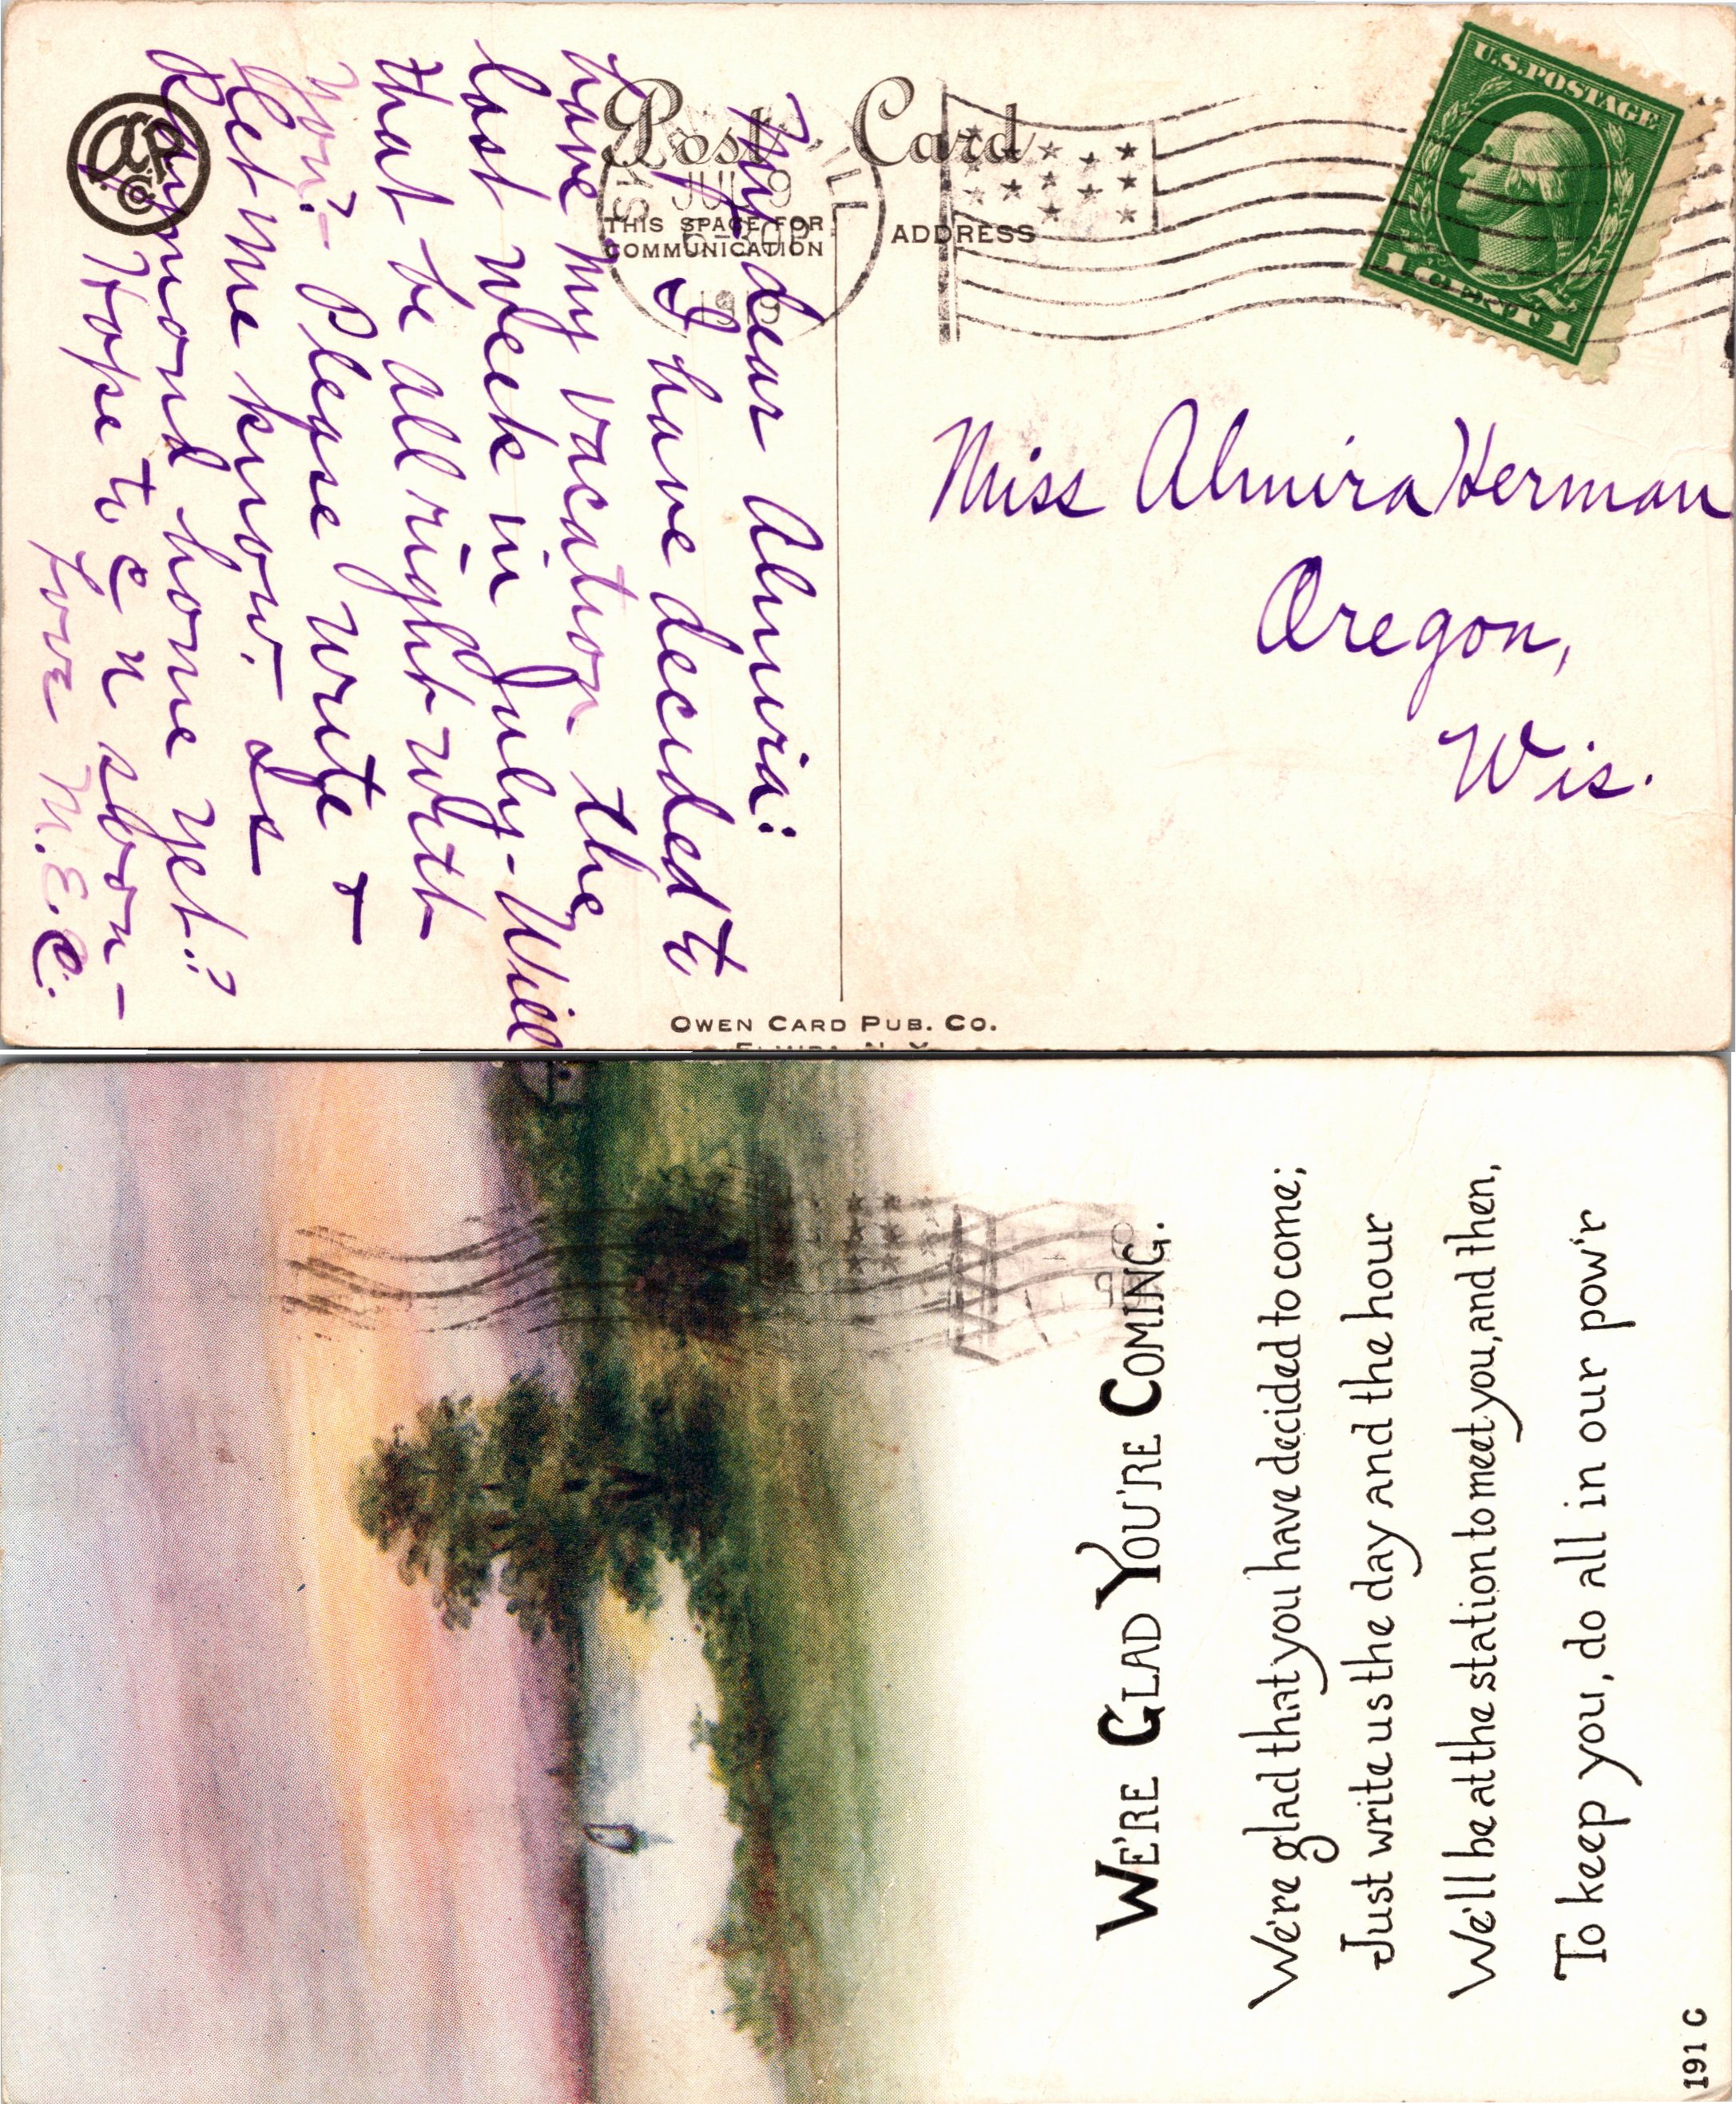 Post Card
THIS SPACE FOR
COMMUNICATION
ADDRESS
JUL 9
U.S. POSTAGE
1 CENT 1
Miss Almira Herman
Oregon,
Wis.
My dear Almira:
I have decided to
have my vacation the
last week in July - Will
that be all right with
you? - Please write &
let me know. Is
Raymond home yet?
Hope to c n soon -
Love M.E.C.
OWEN CARD PUB. CO.
ELMIRA N. Y.
WE'RE GLAD YOU'RE COMING.
We're glad that you have decided to come;
Just write us the day and the hour
We'll be at the station to meet you, and then,
To keep you, do all in our pow'r
191 C